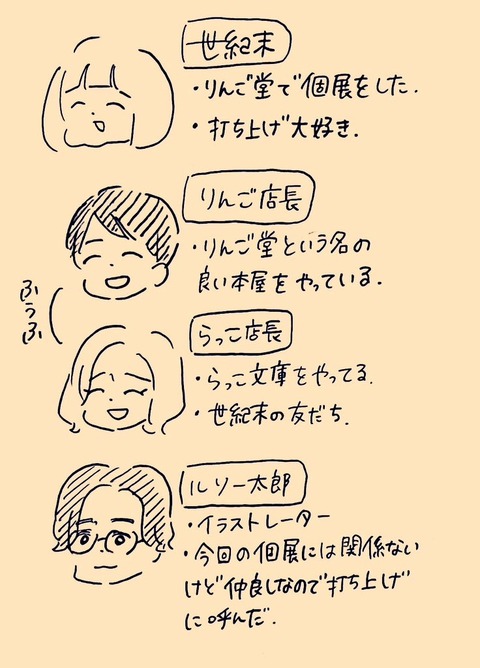 世紀末
・りんご堂で個展をした.
・打ち上げ大好き.
りんご店長
・りんご堂という名の
良い本屋をやっている.
ふうふ
らっこ店長
・らっこ文庫をやってる.
・世紀末の友だち.
ルソー太郎
・イラストレーター
・今回の個展には関係ない
けど仲良しなので打ち上げ
に呼んだ.